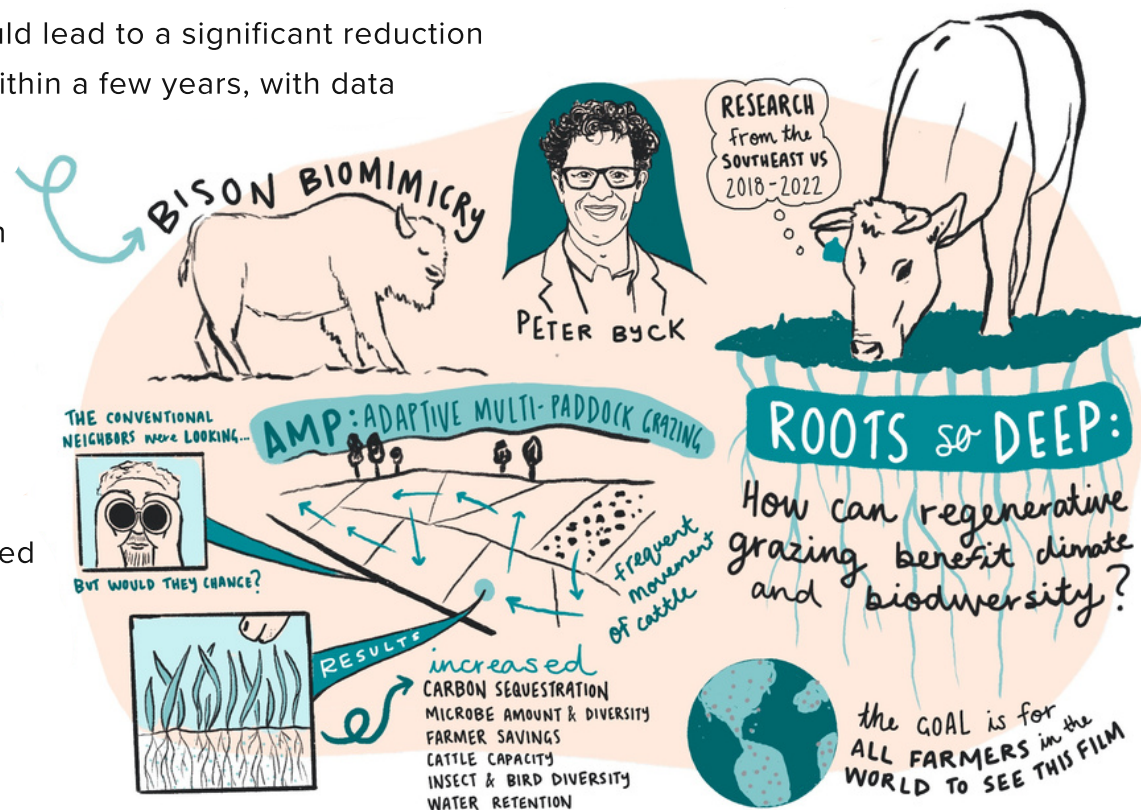 uld lead to a significant reduction
ithin a few years, with data
n
ed
BISON BIOMIMICRY
PETER BYCK
RESEARCH
from the
SOUTHEAST US
2018-2022
THE CONVENTIONAL
NEIGHBORS were LOOKING...
BUT WOULD THEY CHANGE?
AMP: ADAPTIVE MULTI-PADDOCK GRAZING
frequent
movement
of cattle
RESULTS
increased
CARBON SEQUESTRATION
MICROBE AMOUNT & DIVERSITY
FARMER SAVINGS
CATTLE CAPACITY
INSECT & BIRD DIVERSITY
WATER RETENTION
ROOTS so DEEP:
How can regenerative
grazing benefit climate
and biodiversity?
the GOAL is for
ALL FARMERS in the
WORLD TO SEE THIS FILM